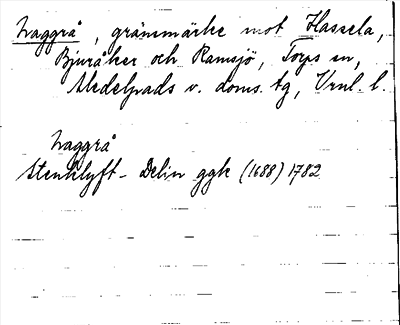 Naggrå, gränsmärke mot Hassela,
Bjuråker och Ramsjö, Torps sn,
Medelpads v. doms. tg, Vnl. l.
Naggrå
Stenklyft - Delin ggk (1688) 1782